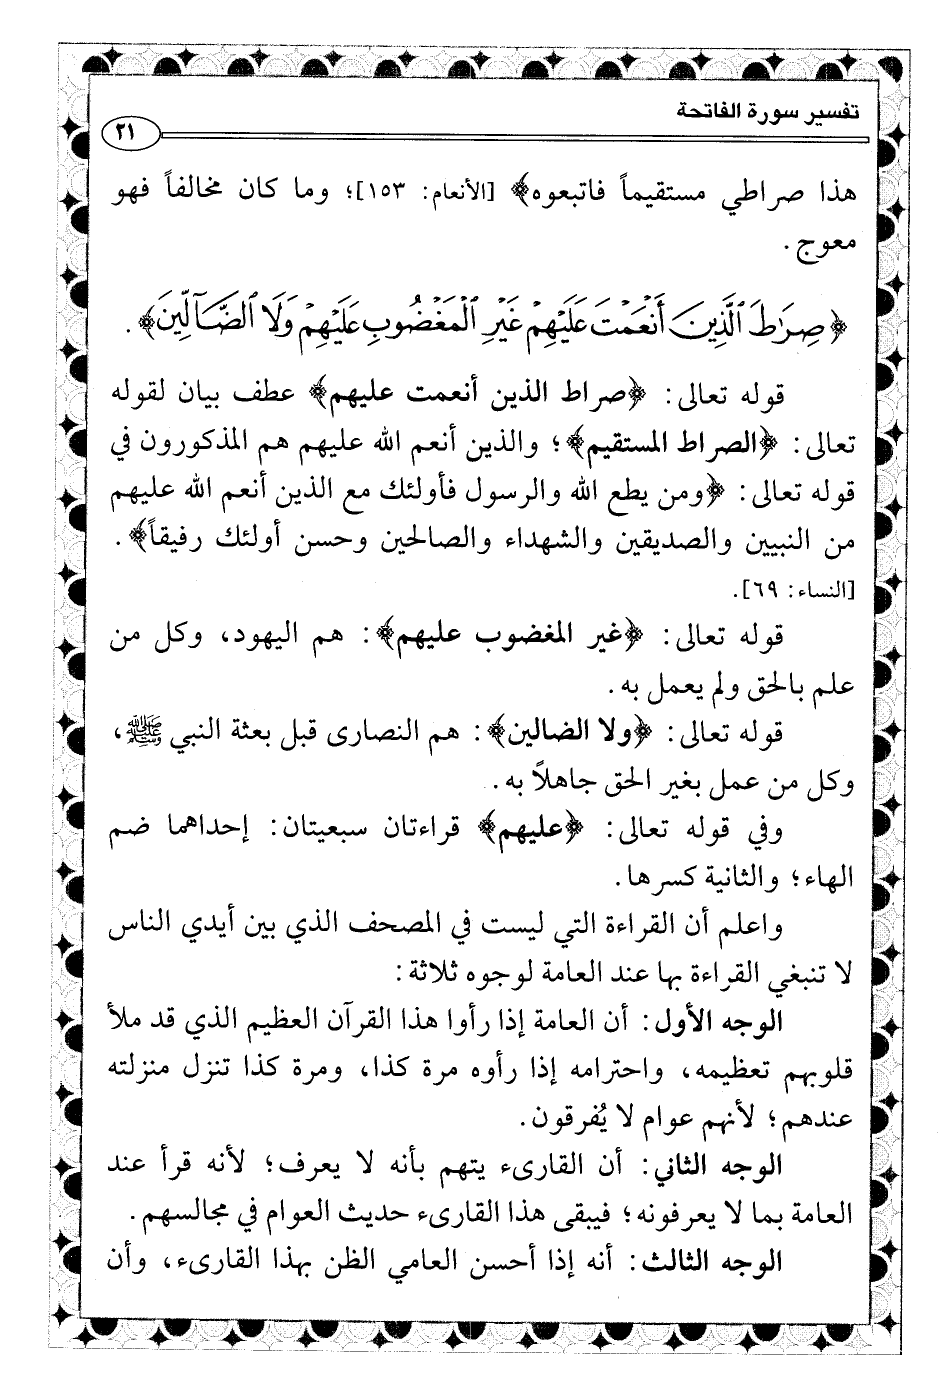 تفسير سورة الفاتحة
٢١
هذا صراطي مستقيماً فاتبعوه﴾ [الأنعام: ١٥٣]؛ وما كان مخالفاً فهو
معوج.
﴿صِرَٰطَ ٱلَّذِينَ أَنۡعَمۡتَ عَلَيۡهِمۡ غَيۡرِ ٱلۡمَغۡضُوبِ عَلَيۡهِمۡ وَلَا ٱلضَّآلِّينَ﴾.
قوله تعالى: ﴿صراط الذين أنعمت عليهم﴾ عطف بيان لقوله
تعالى: ﴿الصراط المستقيم﴾؛ والذين أنعم الله عليهم هم المذكورون في
قوله تعالى: ﴿ومن يطع الله والرسول فأولئك مع الذين أنعم الله عليهم
من النبيين والصديقين والشهداء والصالحين وحسن أولئك رفيقاً﴾.
[النساء: ٦٩].
قوله تعالى: ﴿غير المغضوب عليهم﴾: هم اليهود، وكل من
علم بالحق ولم يعمل به.
قوله تعالى: ﴿ولا الضالين﴾: هم النصارى قبل بعثة النبي ﷺ،
وكل من عمل بغير الحق جاهلاً به.
وفي قوله تعالى: ﴿عليهم﴾ قراءتان سبعيتان: إحداهما ضم
الهاء؛ والثانية كسرها.
واعلم أن القراءة التي ليست في المصحف الذي بين أيدي الناس
لا تنبغي القراءة بها عند العامة لوجوه ثلاثة:
الوجه الأول: أن العامة إذا رأوا هذا القرآن العظيم الذي قد ملأ
قلوبهم تعظيمه، واحترامه إذا رأوه مرة كذا، ومرة كذا تنزل منزلته
عندهم؛ لأنهم عوام لا يُفرقون.
الوجه الثاني: أن القارىء يتهم بأنه لا يعرف؛ لأنه قرأ عند
العامة بما لا يعرفونه؛ فيبقى هذا القارىء حديث العوام في مجالسهم.
الوجه الثالث: أنه إذا أحسن العامي الظن بهذا القارىء، وأن